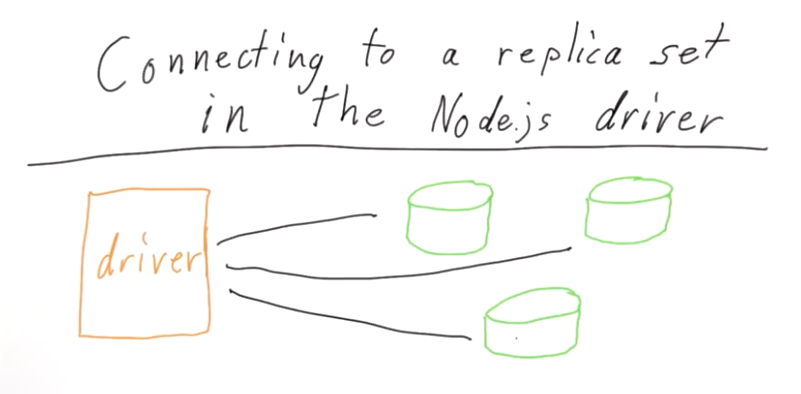 Connecting to a replica set
in the Node.js driver
driver